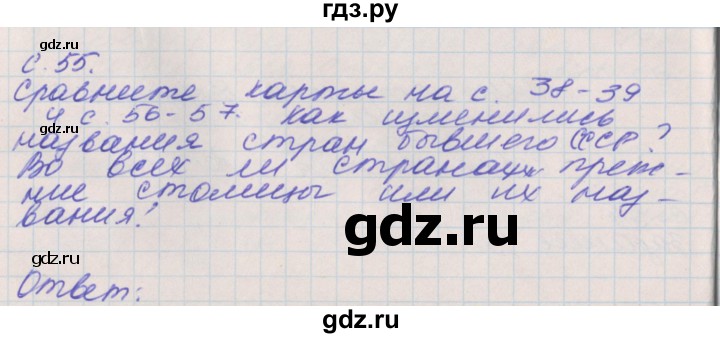 гдз.ру
gdz.ru
gdz.ru
с. 55.
Сравните карты на с. 38-39
и с. 56-57. Как изменились
названия стран бывшего СССР?
Во всех ли странах преж-
ние столицы или их наз-
вания?
gdz.ru
gdz.ru
Ответ:
gdz.ru
gdz.ru